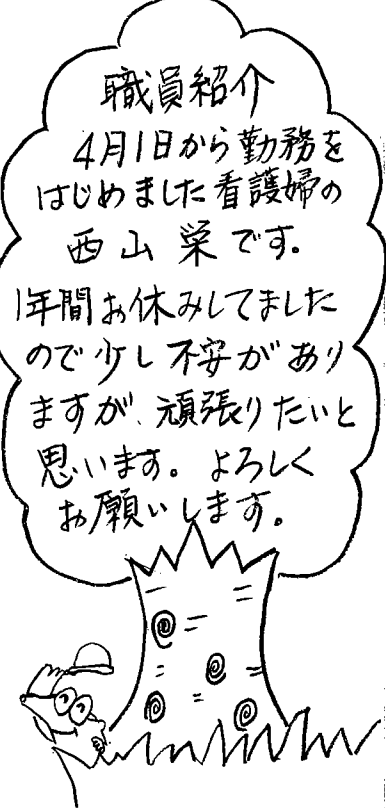 職員紹介
4月1日から勤務を
はじめました看護婦の
西山栄です。
1年間お休みしてました
ので少し不安があり
ますが、頑張りたいと
思います。よろしく
お願いします。